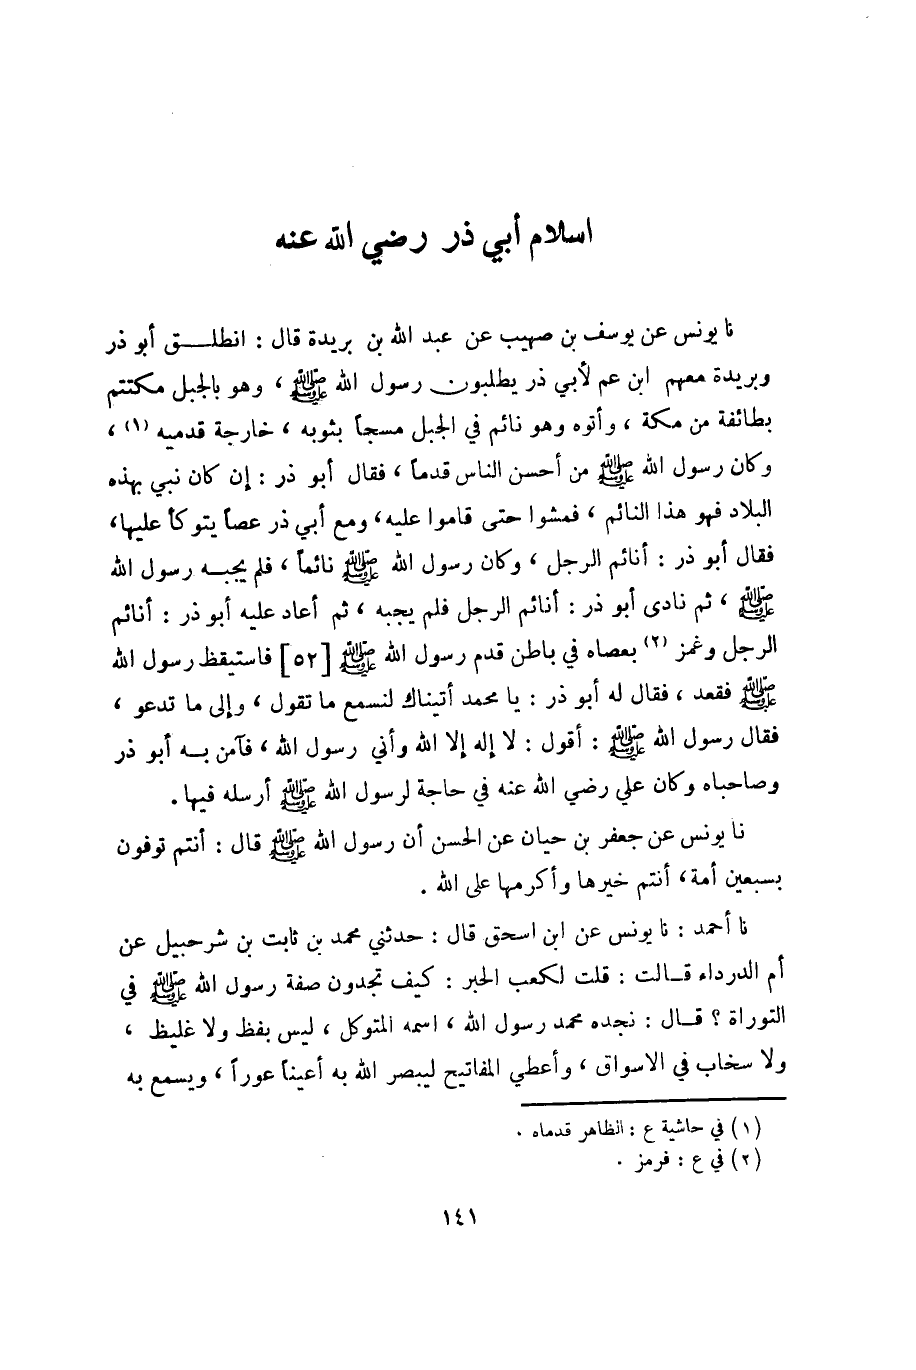 اسلام أبي ذر رضي الله عنه
نا يونس عن يوسف بن صهيب عن عبد الله بن بريدة قال : انطلـــق أبو ذر
وبريدة معهم ابن عم لأبي ذر يطلبون رسول الله ﷺ ، وهو بالجبل مكتتم
بطائفة من مكة ، وأتوه وهو نائم في الجبل مسجاً بثوبه ، خارجة قدميه (١) ،
وكان رسول الله ﷺ من أحسن الناس قدماً ، فقال أبو ذر : إن كان نبي بهذه
البلاد فهو هذا النائم ، فمشوا حتى قاموا عليه، ومع أبي ذر عصاً يتوكأ عليها،
فقال أبو ذر : أنائم الرجل ، وكان رسول الله ﷺ نائماً ، فلم يجبـه رسول الله
ﷺ ، ثم نادى أبو ذر : أنائم الرجل فلم يجبه ، ثم أعاد عليه أبو ذر : أنائم
الرجل وغمز (٢) بعصاه في باطن قدم رسول الله ﷺ [٥٢] فاستيقظ رسول الله
ﷺ فقعد ، فقال له أبو ذر : يا محمد أتيناك لنسمع ما تقول ، وإلى ما تدعو ،
فقال رسول الله ﷺ : أقول : لا إله إلا الله وأني رسول الله ، فآمن بـه أبو ذر
وصاحباه وكان علي رضي الله عنه في حاجة لرسول الله ﷺ أرسله فيها .
نا يونس عن جعفر بن حيان عن الحسن أن رسول الله ﷺ قال : أنتم توفون
بسبعين أمة ، أنتم خيرها وأكرمها على الله .
نا أحمد : نا يونس عن ابن اسحق قال : حدثني محمد بن ثابت بن شرحبيل عن
أم الدرداء قـالت : قلت لكعب الحبر : كيف تجدون صفة رسول الله ﷺ في
التوراة ؟ قـال : نجده محمد رسول الله ، اسمه المتوكل ، ليس بفظ ولا غليظ ،
ولا سخاب في الاسواق ، وأعطي المفاتيح ليبصر الله به أعيناً عوراً ، ويسمع به
(١) في حاشية ع : الظاهر قدماه .
(٢) في ع : فرمز .
١٤١